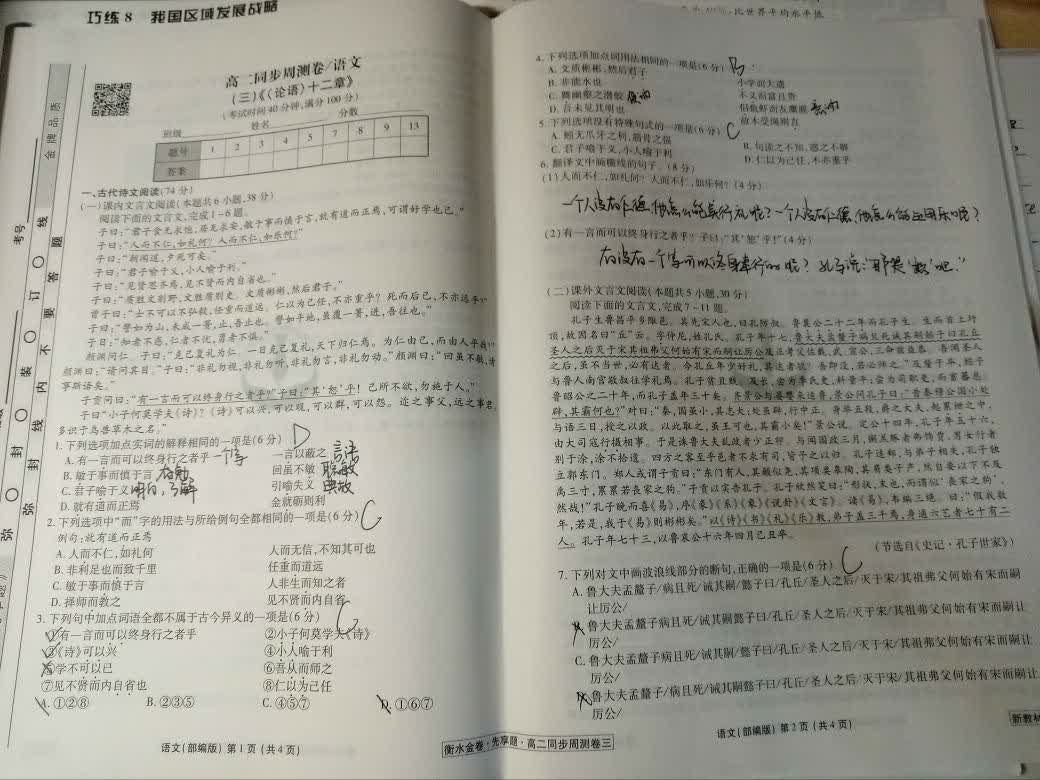 巧练 8 我国区域发展战略
比世界平均水平低
金牌品质
考号
弥 封 装 订 线 内 不 要 答 题
高二同步周测卷/语文
(三)《〈论语〉十二章》
(考试时间40分钟,满分100分)
班级 姓名 分数
题号 1 2 3 4 5 7 8 9 13
答案
一、古代诗文阅读(74分)
(一)课内文言文阅读(本题共6小题,38分)
阅读下面的文言文,完成1~6题。
子曰:“君子食无求饱,居无求安,敏于事而慎于言,就有道而正焉,可谓好学也已。”
子曰:“人而不仁,如礼何?人而不仁,如乐何?”
子曰:“朝闻道,夕死可矣。”
子曰:“君子喻于义,小人喻于利。”
子曰:“见贤思齐焉,见不贤而内自省也。”
子曰:“质胜文则野,文胜质则史。文质彬彬,然后君子。”
曾子曰:“士不可以不弘毅,任重而道远。仁以为己任,不亦重乎?死而后已,不亦远乎?”
子曰:“譬如为山,未成一篑,止,吾止也。譬如平地,虽覆一篑,进,吾往也。”
子曰:“知者不惑,仁者不忧,勇者不惧。”
颜渊问仁。子曰:“克己复礼为仁。一日克己复礼,天下归仁焉。为仁由己,而由人乎哉?”
颜渊曰:“请问其目。”子曰:“非礼勿视,非礼勿听,非礼勿言,非礼勿动。”颜渊曰:“回虽不敏,请
事斯语矣。”
子贡问曰:“有一言而可以终身行之者乎?”子曰:“其‘恕’乎!己所不欲,勿施于人。”
子曰“小子何莫学夫《诗》?《诗》可以兴,可以观,可以群,可以怨。迩之事父,远之事君,
多识于鸟兽草木之名。”
1. 下列选项加点实词的解释相同的一项是(6分) D
A. 有一言而可以终身行之者乎 一个字 一言以蔽之 言语
B. 敏于事而慎于言 勤勉 回虽不敏 聪敏
C. 君子喻于义 明白,了解 引喻失义 典故
D. 就有道而正焉 金就砺则利
2. 下列选项中“而”字的用法与所给例句全都相同的一项是(6分) C
例句:就有道而正焉
A. 人而不仁,如礼何 人而无信,不知其可也
B. 非利足也而致千里 任重而道远
C. 敏于事而慎于言 人非生而知之者
D. 择师而教之 见不贤而内自省
3. 下列句中加点词语全都不属于古今异义的一项是(6分) C
①有一言而可以终身行之者乎 ②小子何莫学夫《诗》
③《诗》可以兴 ④小人喻于利
⑤学不可以已 ⑥吾从而师之
⑦见不贤而内自省也 ⑧仁以为己任
A. ①②⑧ B. ②③⑤ C. ④⑤⑦ D. ①⑥⑦
语文(部编版) 第1页(共4页)
4. 下列选项加点词用法相同的一项是(6分) B
A. 文质彬彬,然后君子 小学而大遗
B. 非能水也 不义而富且贵
C. 舞幽壑之潜蛟 使动 侣鱼虾而友麋鹿 意动
D. 吾未见其明也 故木受绳则直
5. 下列选项没有特殊句式的一项是(6分) C
A. 蚓无爪牙之利,筋骨之强 B. 句读之不知,惑之不解
C. 君子喻于义,小人喻于利 D. 仁以为己任,不亦重乎
6. 翻译文中画横线的句子。(8分)
(1)人而不仁,如礼何?人而不仁,如乐何?(4分)
一个人没有仁德,他怎么能实行礼呢?一个人没有仁德,他怎么能运用乐呢?
(2)有一言而可以终身行之者乎?子曰:“其‘恕’乎!”(4分)
有没有一个字可以终身奉行的呢?孔子说:“那是‘恕’吧。”
(二)课外文言文阅读(本题共5小题,30分)
阅读下面的文言文,完成7~11题。
孔子生鲁昌平乡陬邑。其先宋人也,曰孔防叔。鲁襄公二十二年而孔子生。生而首上圩
顶,故因名曰“丘”云。字仲尼,姓孔氏。孔子年十七,鲁大夫孟釐子病且死诫其嗣懿子曰孔丘
圣人之后灭于宋其祖弗父何始有宋而嗣让厉公及正考父佐戴、武、宣公,三命兹益恭。吾闻圣人
之后,虽不当世,必有达者。今孔丘年少好礼,其达者欤?吾即没,若必师之。”及釐子卒,懿子
与鲁人南宫敬叔往学礼焉。孔子贫且贱。及长,尝为季氏史,料量平;尝为司职吏,而畜蕃息。
鲁昭公之二十年,而孔子盖年三十矣。齐景公与晏婴来适鲁,景公问孔子曰:“昔秦穆公国小处
辟,其霸何也?”对曰:“秦,国虽小,其志大;处虽辟,行中正。身举五羖,爵之大夫,起累绁之中,
与语三日,授之以政。以此取之,虽王可也,其霸小矣!”景公说。定公十四年,孔子年五十六,
由大司寇行摄相事。于是诛鲁大夫乱政者少正卯。与闻国政三月,粥羔豚者弗饰贾,男女行者
别于涂,涂不拾遗。四方之客至乎邑者不求有司,皆予之以归。孔子适郑,与弟子相失,孔子独
立郭东门。郑人或谓子贡曰:“东门有人,其颡似尧,其项类皋陶,其肩类子产,然自要以下不及
禹三寸,累累若丧家之狗。”子贡以实告孔子。孔子欣然笑曰:“形状,末也,而谓似‘丧家之狗’,
然哉!”孔子晚而喜《易》,序《彖》《系》《象》《说卦》《文言》。读《易》,韦编三绝。曰:“假我数
年,若是,我于《易》则彬彬矣。”以《诗》《书》《礼》《乐》教,弟子盖三千焉,身通六艺者七十有二
人。孔子年七十三,以鲁哀公十六年四月己丑卒。
(节选自《史记·孔子世家》)
7. 下列对文中画波浪线部分的断句,正确的一项是(6分) C
A. 鲁大夫孟釐子/病且死/诫其嗣/懿子曰/孔丘/圣人之后/灭于宋/其祖弗父何始有宋而嗣
让厉公/
B. 鲁大夫孟釐子病且死/诫其嗣/懿子曰/孔丘/圣人之后/灭于宋/其祖弗父何始有宋而嗣让
厉公/
C. 鲁大夫孟釐子病且死/诫其嗣懿子曰/孔丘/圣人之后/灭于宋/其祖弗父何始有宋而嗣让
厉公/
D. 鲁大夫孟釐子/病且死/诫其嗣懿子曰/孔丘/圣人之后/灭于宋/其祖弗父何始有宋而嗣让
厉公/
语文(部编版) 第2页(共4页)
衡水金卷·先享题·高二同步周测卷三
新教材